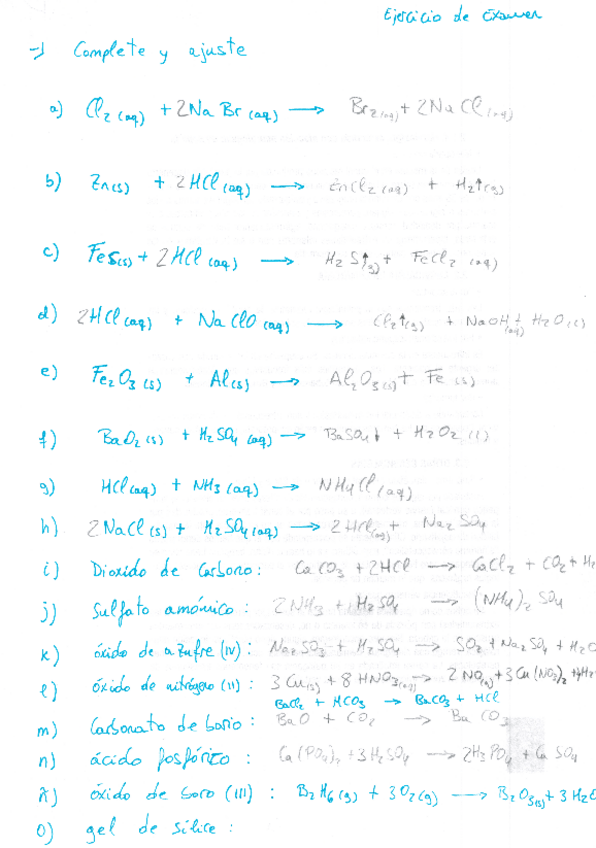 Ejercicio de Examen
→ Complete y ajuste
a) Cl2 (aq) + 2NaBr (aq) → Br2 (aq) + 2NaCl (aq)
b) Zn(s) + 2HCl (aq) → ZnCl2 (aq) + H2↑(g)
c) FeS(s) + 2HCl (aq) → H2S↑(g) + FeCl2 (aq)
d) 2HCl (aq) + NaClO (aq) → Cl2↑(g) + NaOH (aq) + H2O (l)
e) Fe2O3 (s) + Al(s) → Al2O3(s) + Fe (s)
f) BaO2 (s) + H2SO4 (aq) → BaSO4↓ + H2O2 (l)
g) HCl(aq) + NH3 (aq) → NH4Cl (aq)
h) 2NaCl(s) + H2SO4(aq) → 2HCl(aq) + Na2SO4
i) Dioxido de Carbono: CaCO3 + 2HCl → CaCl2 + CO2 + H2
j) Sulfato amónico: 2NH3 + H2SO4 → (NH4)2 SO4
k) óxido de azufre (IV): Na2SO3 + H2SO4 → SO2 + Na2SO4 + H2O
l) óxido de nitrógeno (II): 3Cu(s) + 8HNO3(aq) → 2NO(g) + 3Cu(NO3)2 + 4H2
BaCl2 + HCO3 → BaCO3 + HCl
m) Carbonato de bario: BaO + CO2 → BaCO3
n) ácido fosfórico: Ca(PO4)2 + 3H2SO4 → 2H3PO4 + CaSO4
ñ) óxido de boro (III): B2H6(g) + 3O2(g) → B2O3(s) + 3H2O
o) gel de sílice: